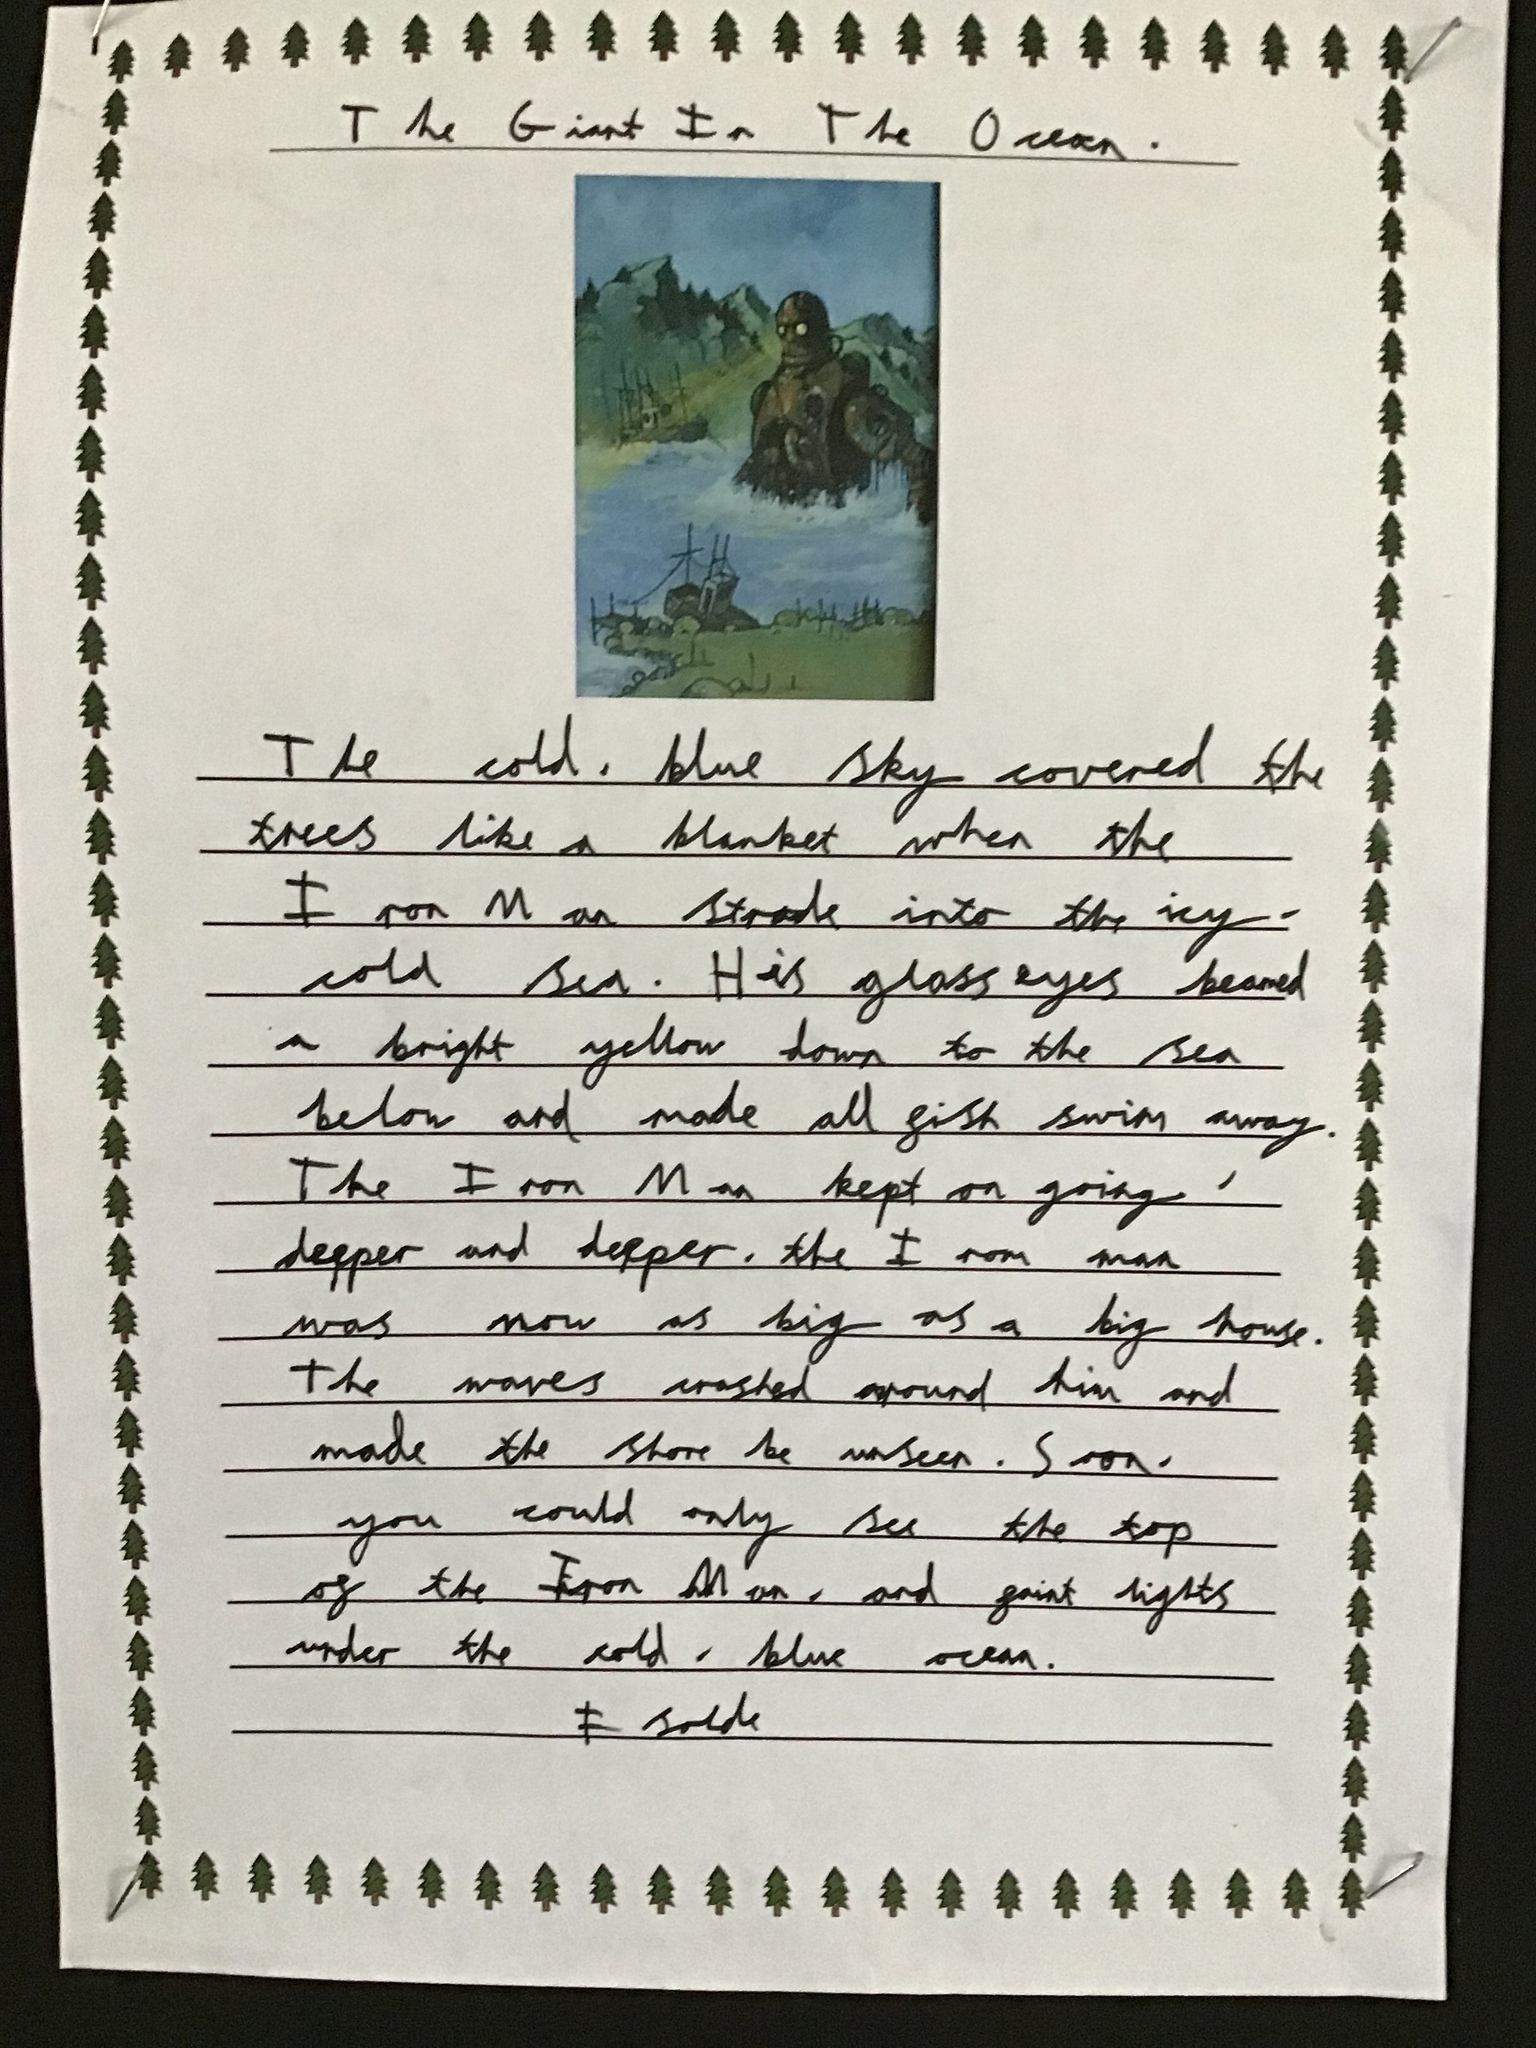 The Giant In The Ocean.
The cold, blue sky covered the
trees like a blanket when the
Iron Man strode into the icy-
cold sea. His glass eyes beamed
a bright yellow down to the sea
below and made all fish swim away.
The Iron Man kept on going,
deeper and deeper. the Iron man
was now as big as a big house.
The waves crashed around him and
made the shore be unseen. Soon,
you could only see the top
of the Iron Man, and faint lights
under the cold, blue ocean.
Isolde